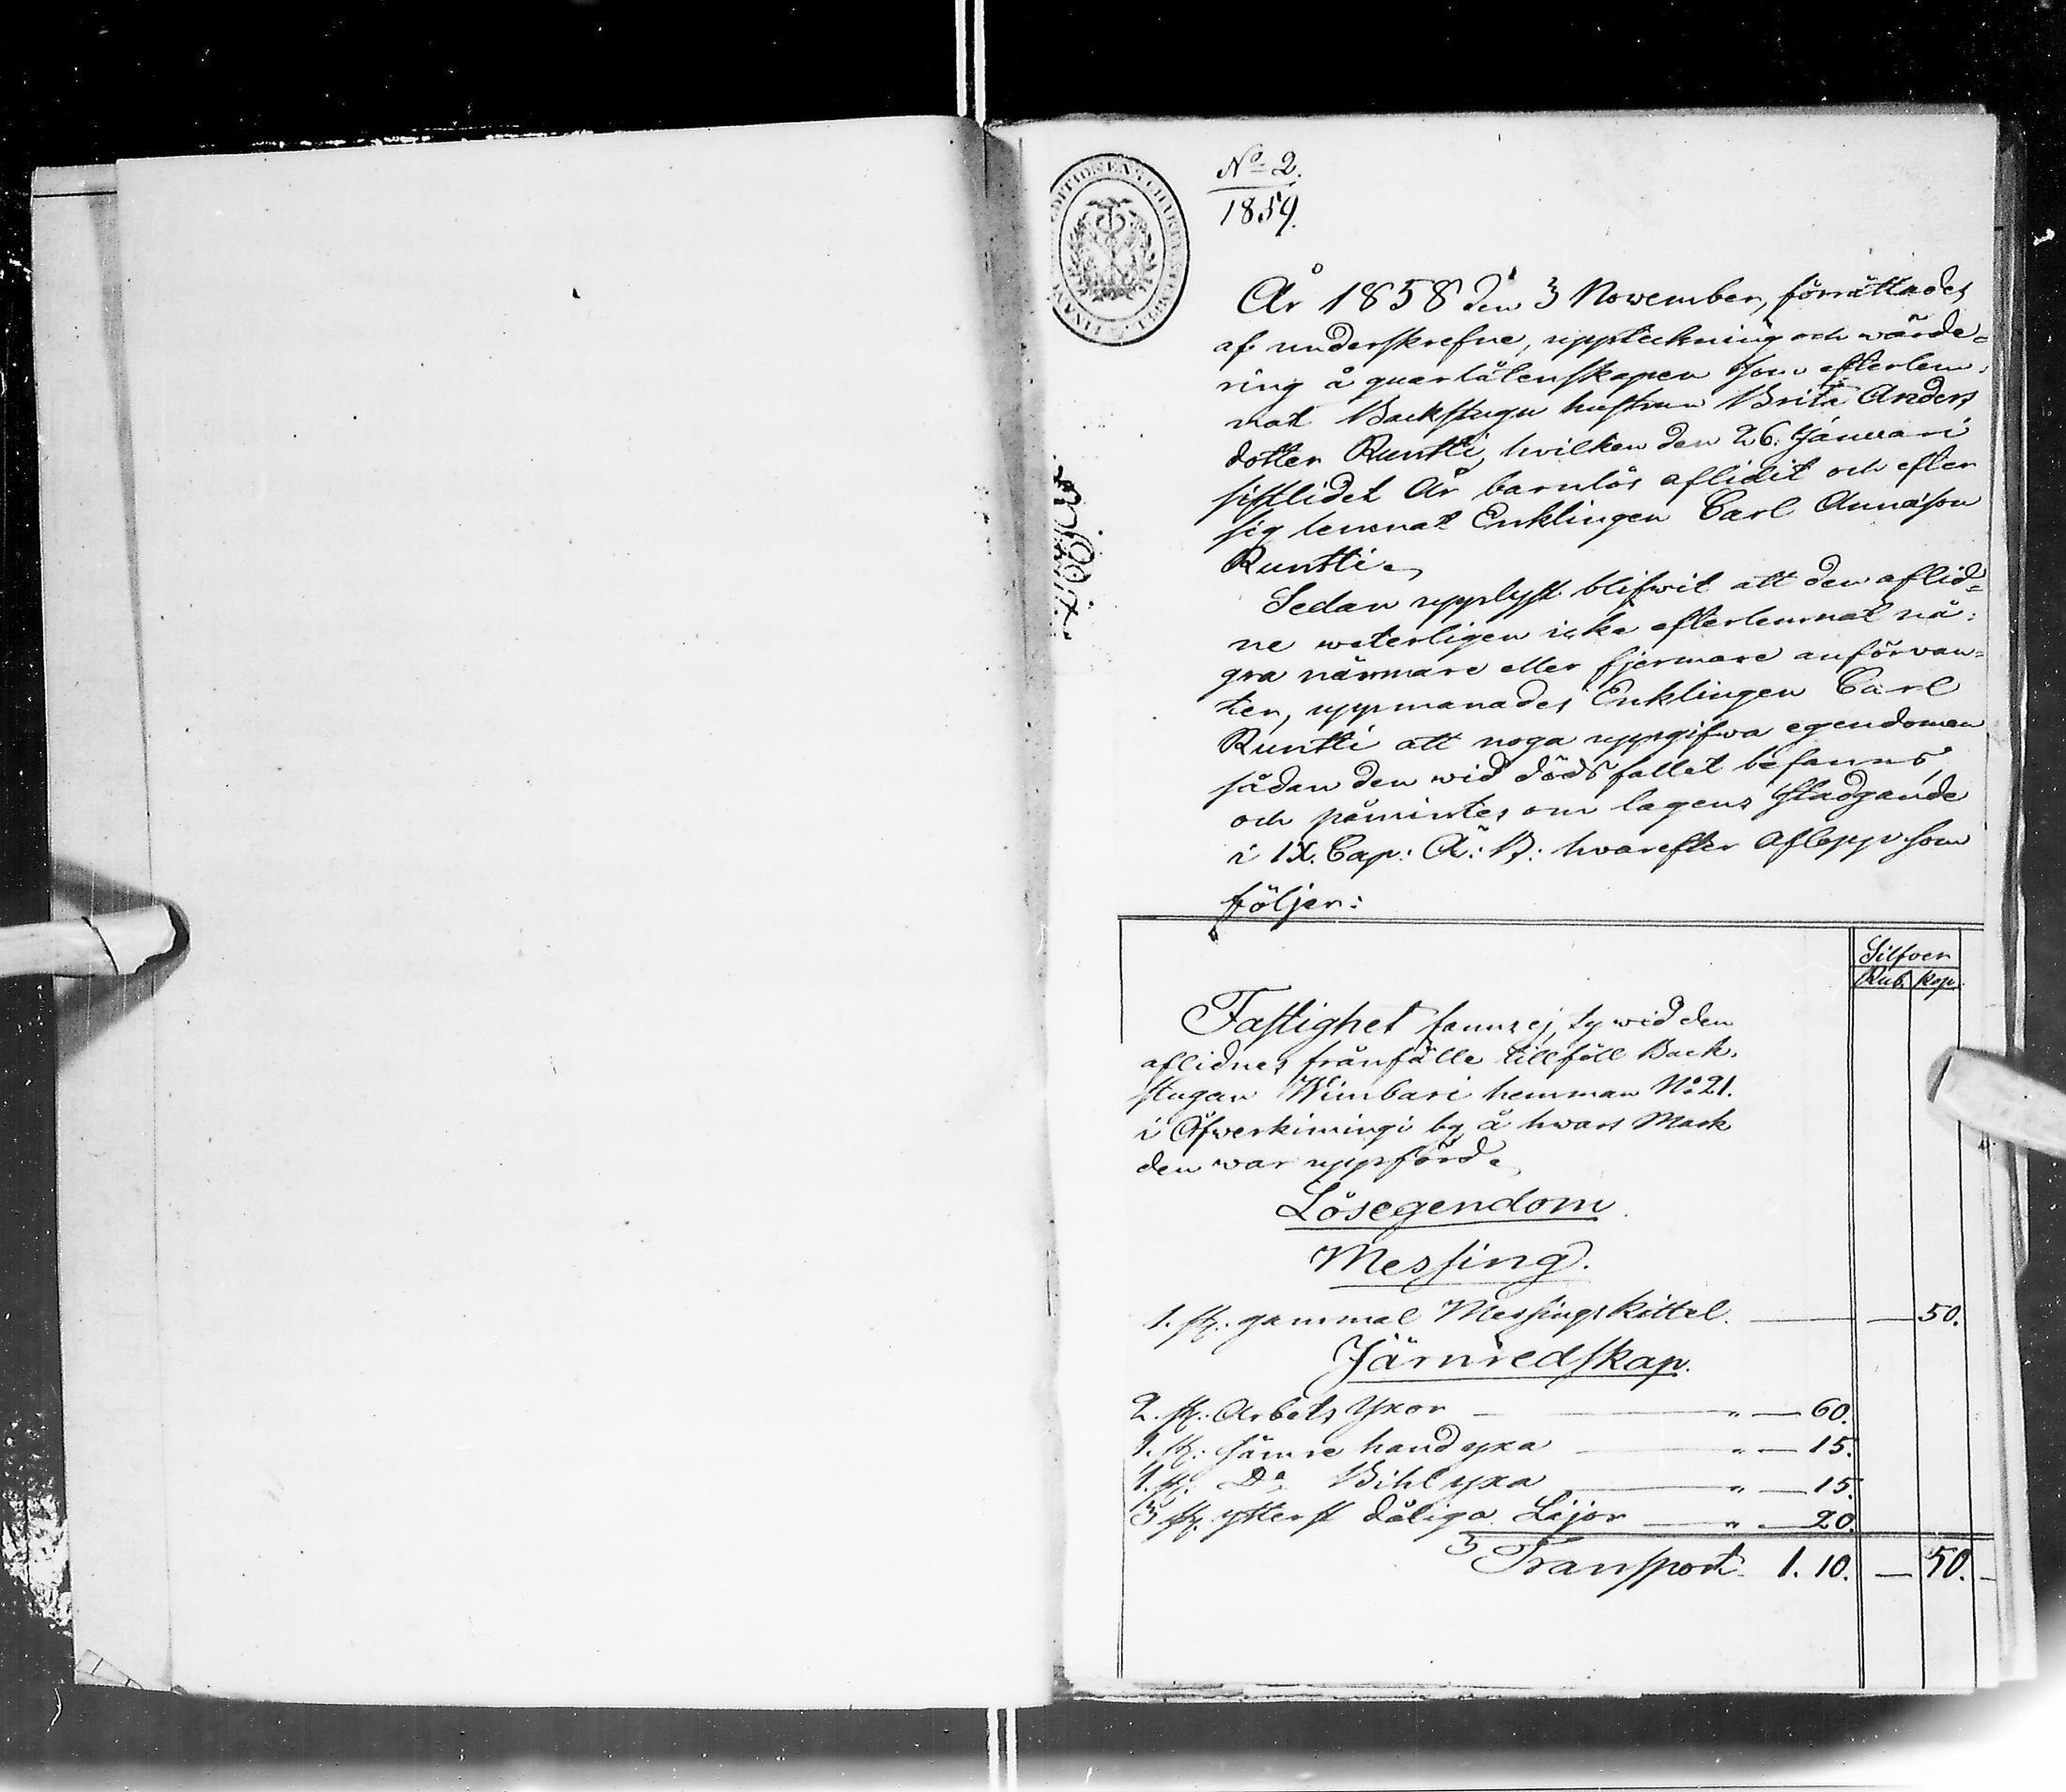 No 2.
1859.
År 1858 den 3 November, förrättades
af underskrefne, uppteckning och wärde=
ring å quarlåtenskapen som efterlem,
nat Backstugu hustrun Brita Anders
dotter Runtti, hvilken den 26. Januari
sistlidet År barnlös aflidit och efter
sig lemnat Enklingen Carl Annæson
Runtti.
Sedan upplyst blifwit att den aflid=
ne weterligen icke efterlemnat nå:
gra närmare eller fjermare anförvan=
ter, uppmanades Enklingen Carl
Runtti att noga uppgifwa egendomen
sådan den wid dödsfallet befanns,
och påmintes om lagens stadgande
i IX. Cap: Ä: B: hvarefter aflopp som
följer:
Silfver
Rub. kop.
Fastighet fanns ej, ty wid den
aflidnes frånfälle tillföll Back,
stugan Wimbari hemman No 21.
i Öfwerkimingi by å hwars Mark
den war uppförd.
Lösegendom.
Messing.
1. st. gammal Messings Kittel. — — 50.
Järnredskap.
2. st. Arbets Yxor — " — 60.
1. st. sämre handyxa — " — 15.
1. st. Do Bihlyxa — " — 15.
3 st. ytterst dåliga Lijor — " — 20.
Transport 1. 10. — 50.